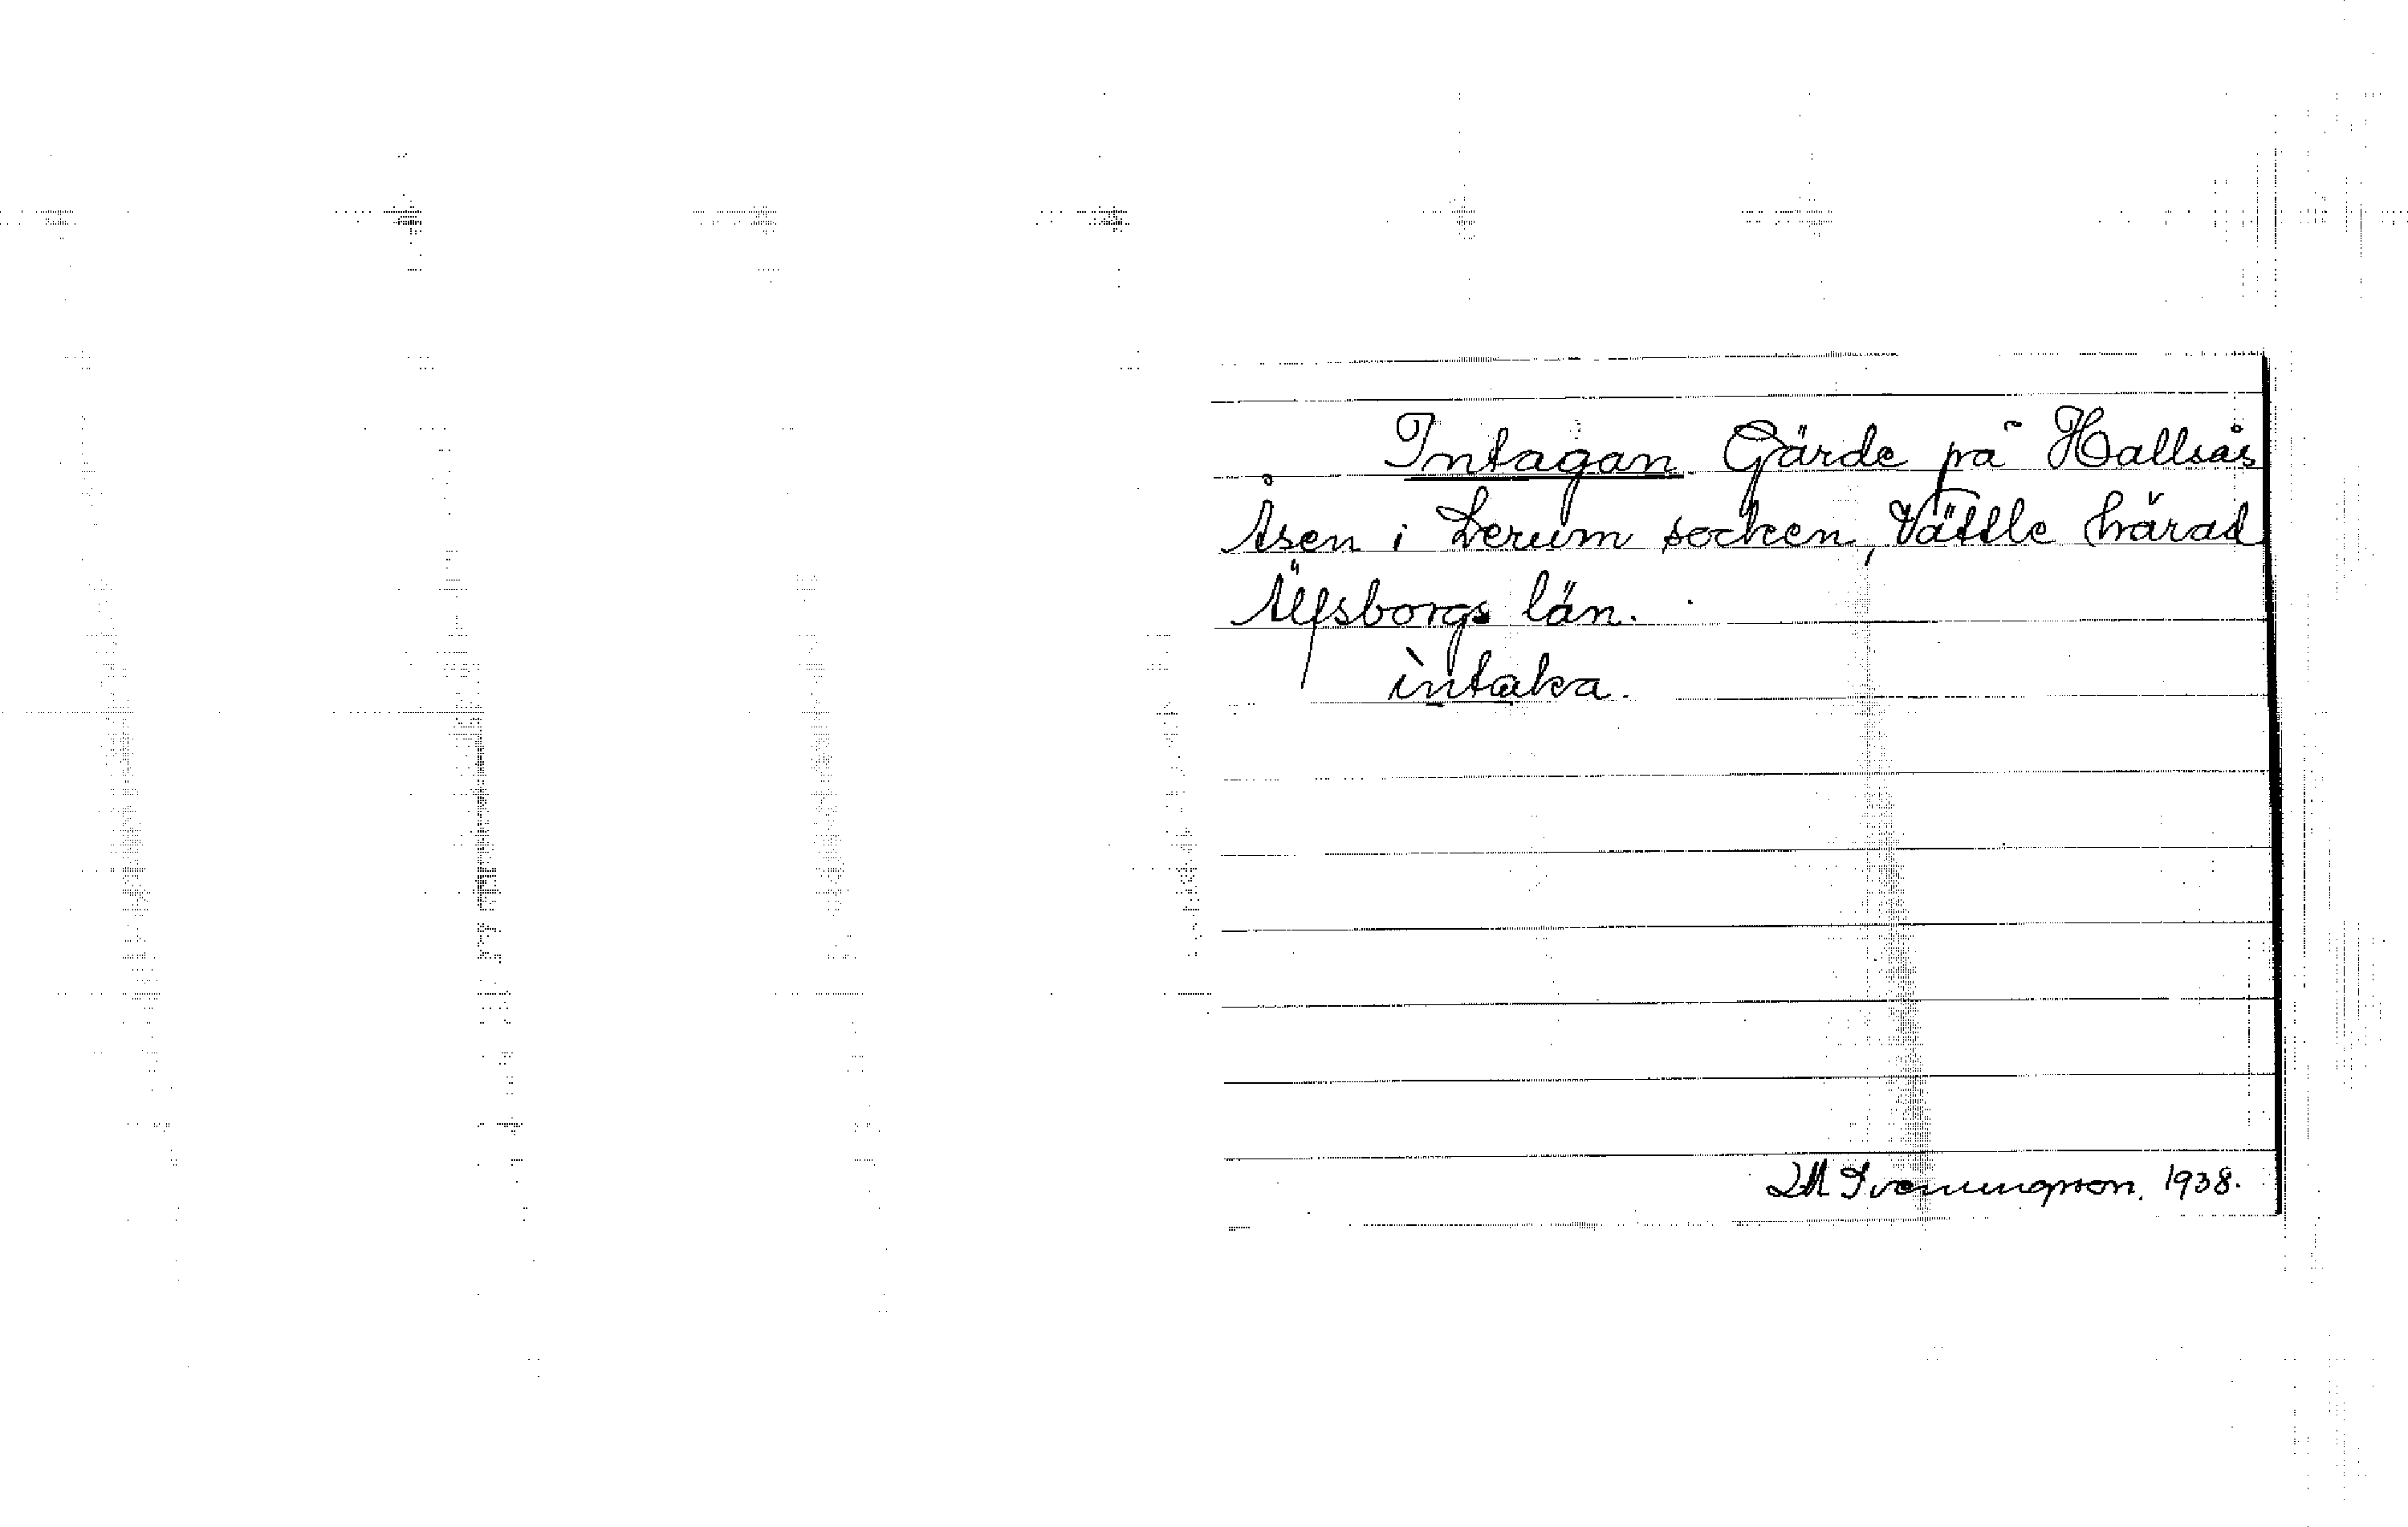 Intagan. Gärde på Hallsås
Åsen i Lerum socken, Vättle härad
Älfsborgs län.
ìntaka.
Svenningsson. 1938.